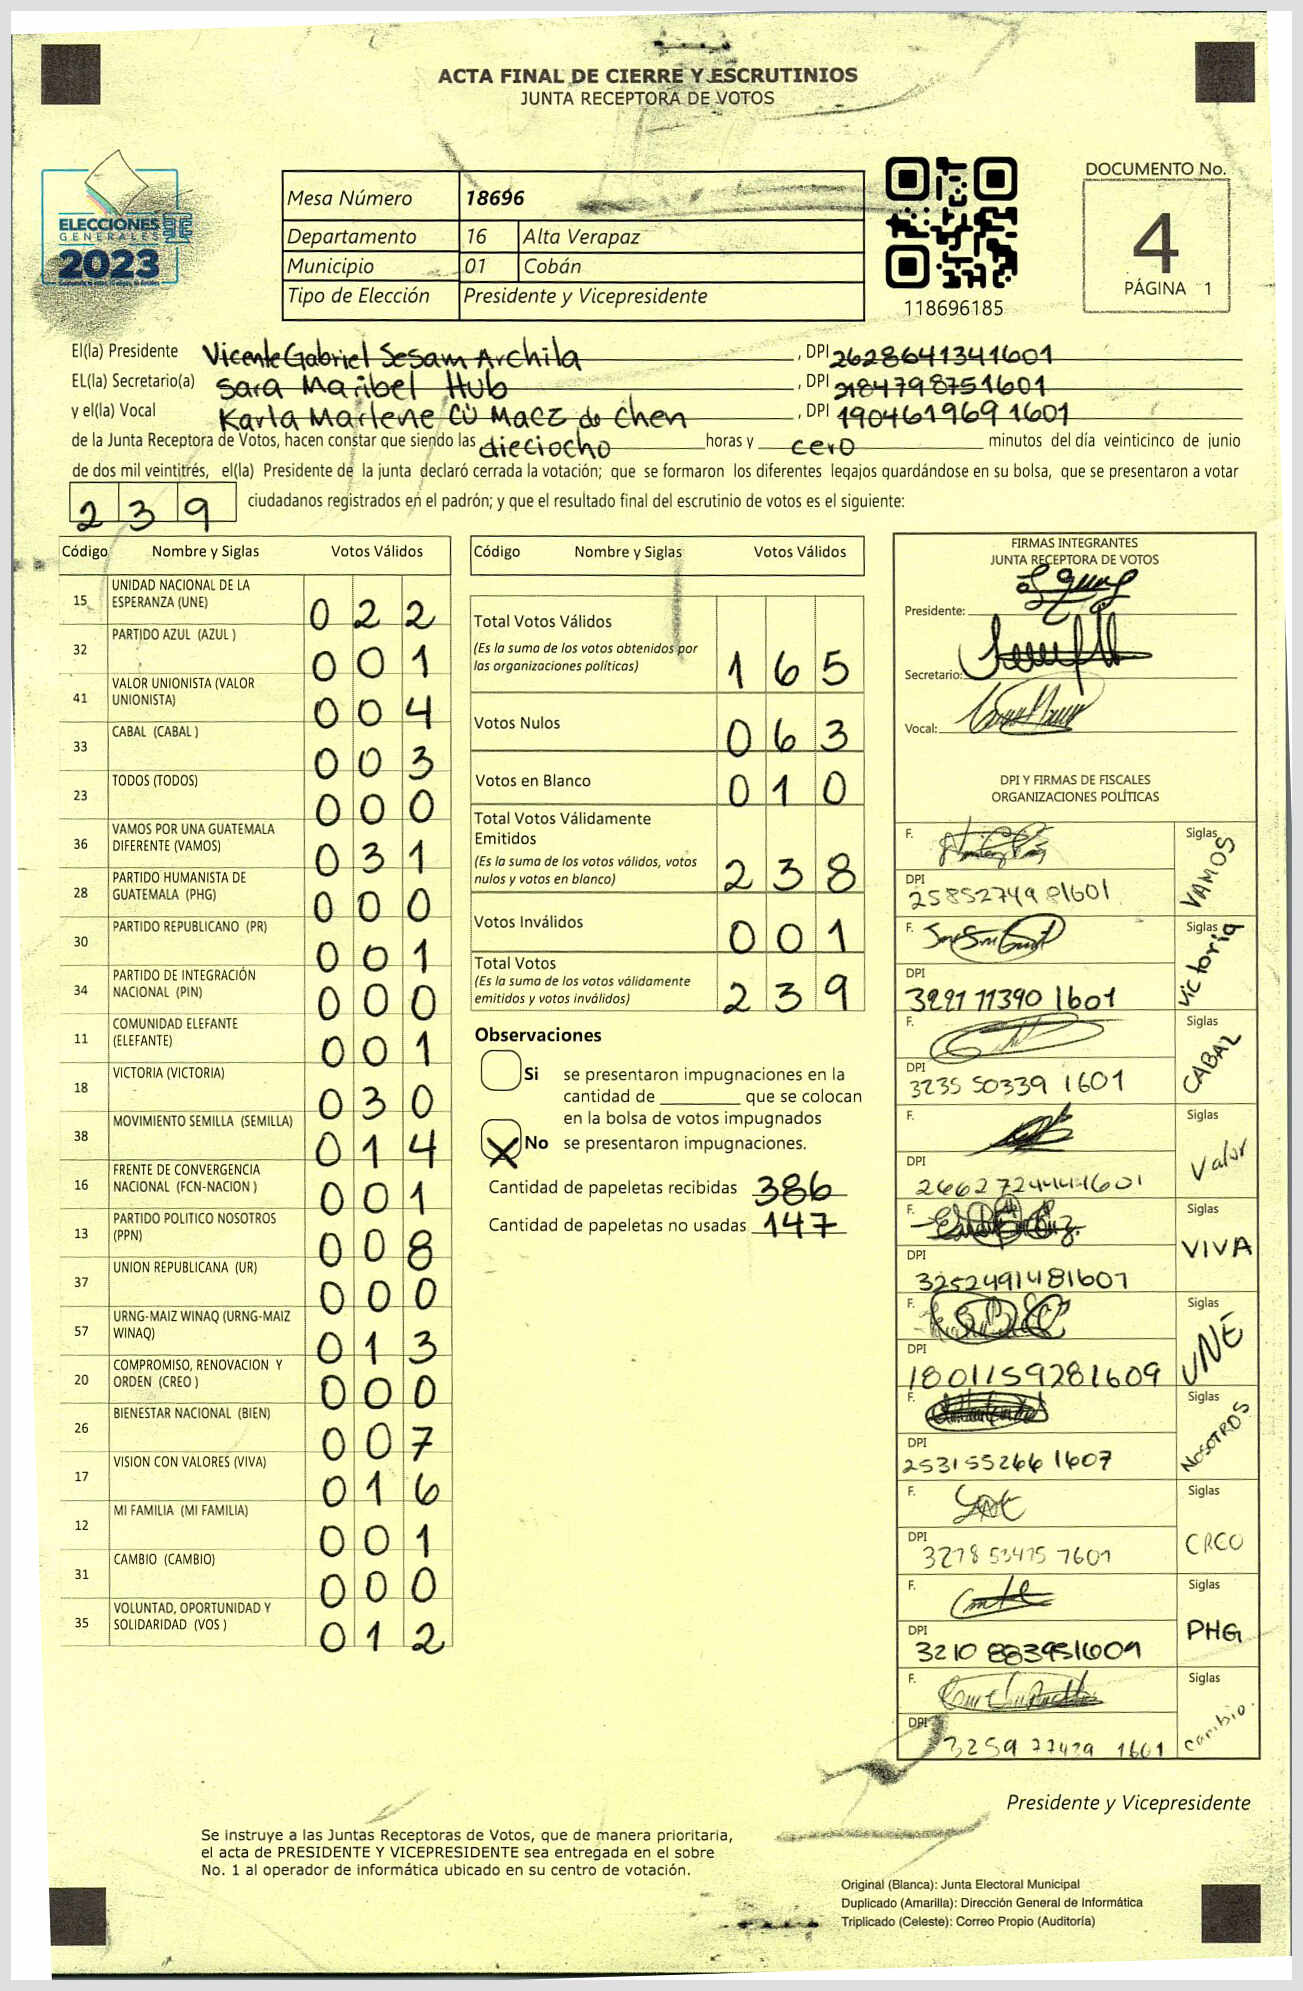 ACTA FINAL DE CIERRE Y ESCRUTINIOS
JUNTA RECEPTORA DE VOTOS
ELECCIONES
GENERALES
2023
Mesa Número 18696
Departamento 16 Alta Verapaz
Municipio 01 Cobán
Tipo de Elección Presidente y Vicepresidente
118696185
DOCUMENTO No.
4
PÁGINA 1
El(la) Presidente Vicente Gabriel Sesam Archila, DPI 2628641341601
EL(la) Secretario(a) Sara Maribel Hub, DPI 2184798751601
y el(la) Vocal Karla Marlene Cú Maez de Chen, DPI 190461969 1601
de la Junta Receptora de Votos, hacen constar que siendo las dieciocho horas y cero minutos del día veinticinco de junio
de dos mil veintitrés, el(la) Presidente de la junta declaró cerrada la votación; que se formaron los diferentes legajos guardándose en su bolsa, que se presentaron a votar
239 ciudadanos registrados en el padrón; y que el resultado final del escrutinio de votos es el siguiente:
Código Nombre y Siglas Votos Válidos
15 UNIDAD NACIONAL DE LA
ESPERANZA (UNE) 022
32 PARTIDO AZUL (AZUL ) 001
41 VALOR UNIONISTA (VALOR
UNIONISTA) 004
33 CABAL (CABAL ) 003
23 TODOS (TODOS) 000
36 VAMOS POR UNA GUATEMALA
DIFERENTE (VAMOS) 031
28 PARTIDO HUMANISTA DE
GUATEMALA (PHG) 000
30 PARTIDO REPUBLICANO (PR) 001
34 PARTIDO DE INTEGRACIÓN
NACIONAL (PIN) 000
11 COMUNIDAD ELEFANTE
(ELEFANTE) 001
18 VICTORIA (VICTORIA) 030
38 MOVIMIENTO SEMILLA (SEMILLA) 014
16 FRENTE DE CONVERGENCIA
NACIONAL (FCN-NACION ) 001
13 PARTIDO POLITICO NOSOTROS
(PPN) 008
37 UNION REPUBLICANA (UR) 000
57 URNG-MAIZ WINAQ (URNG-MAIZ
WINAQ) 013
20 COMPROMISO, RENOVACION Y
ORDEN (CREO ) 000
26 BIENESTAR NACIONAL (BIEN) 007
17 VISION CON VALORES (VIVA) 016
12 MI FAMILIA (MI FAMILIA) 001
31 CAMBIO (CAMBIO) 000
35 VOLUNTAD, OPORTUNIDAD Y
SOLIDARIDAD (VOS ) 012
Código Nombre y Siglas Votos Válidos
Total Votos Válidos
(Es la suma de los votos obtenidos por
las organizaciones políticas) 165
Votos Nulos 063
Votos en Blanco 010
Total Votos Válidamente
Emitidos
(Es la suma de los votos válidos, votos
nulos y votos en blanco) 238
Votos Inválidos 001
Total Votos
(Es la suma de los votos válidamente
emitidos y votos inválidos) 239
Observaciones
Si se presentaron impugnaciones en la
cantidad de ________ que se colocan
en la bolsa de votos impugnados
X No se presentaron impugnaciones.
Cantidad de papeletas recibidas 386
Cantidad de papeletas no usadas 147
FIRMAS INTEGRANTES
JUNTA RECEPTORA DE VOTOS
Presidente:
Secretario:
Vocal:
DPI Y FIRMAS DE FISCALES
ORGANIZACIONES POLÍTICAS
F. Siglas VAMOS
DPI 2585274981601
F. Siglas Victoria
DPI 3221 11390 1601
F. Siglas CABAL
DPI 3235 50339 1601
F. Siglas Valor
DPI 2662724441601
F. Siglas VIVA
DPI 3252491481601
F. Siglas UNE
DPI 1801159281609
F. Siglas NOSOTROS
DPI 253155266 1607
F. Siglas CREO
DPI 3278 53475 7601
F. Siglas PHG
DPI 3210 883951601
F. Siglas Cambio.
DPI 3259 77429 1601
Presidente y Vicepresidente
Se instruye a las Juntas Receptoras de Votos, que de manera prioritaria,
el acta de PRESIDENTE Y VICEPRESIDENTE sea entregada en el sobre
No. 1 al operador de informática ubicado en su centro de votación.
Original (Blanca): Junta Electoral Municipal
Duplicado (Amarilla): Dirección General de Informática
Triplicado (Celeste): Correo Propio (Auditoría)